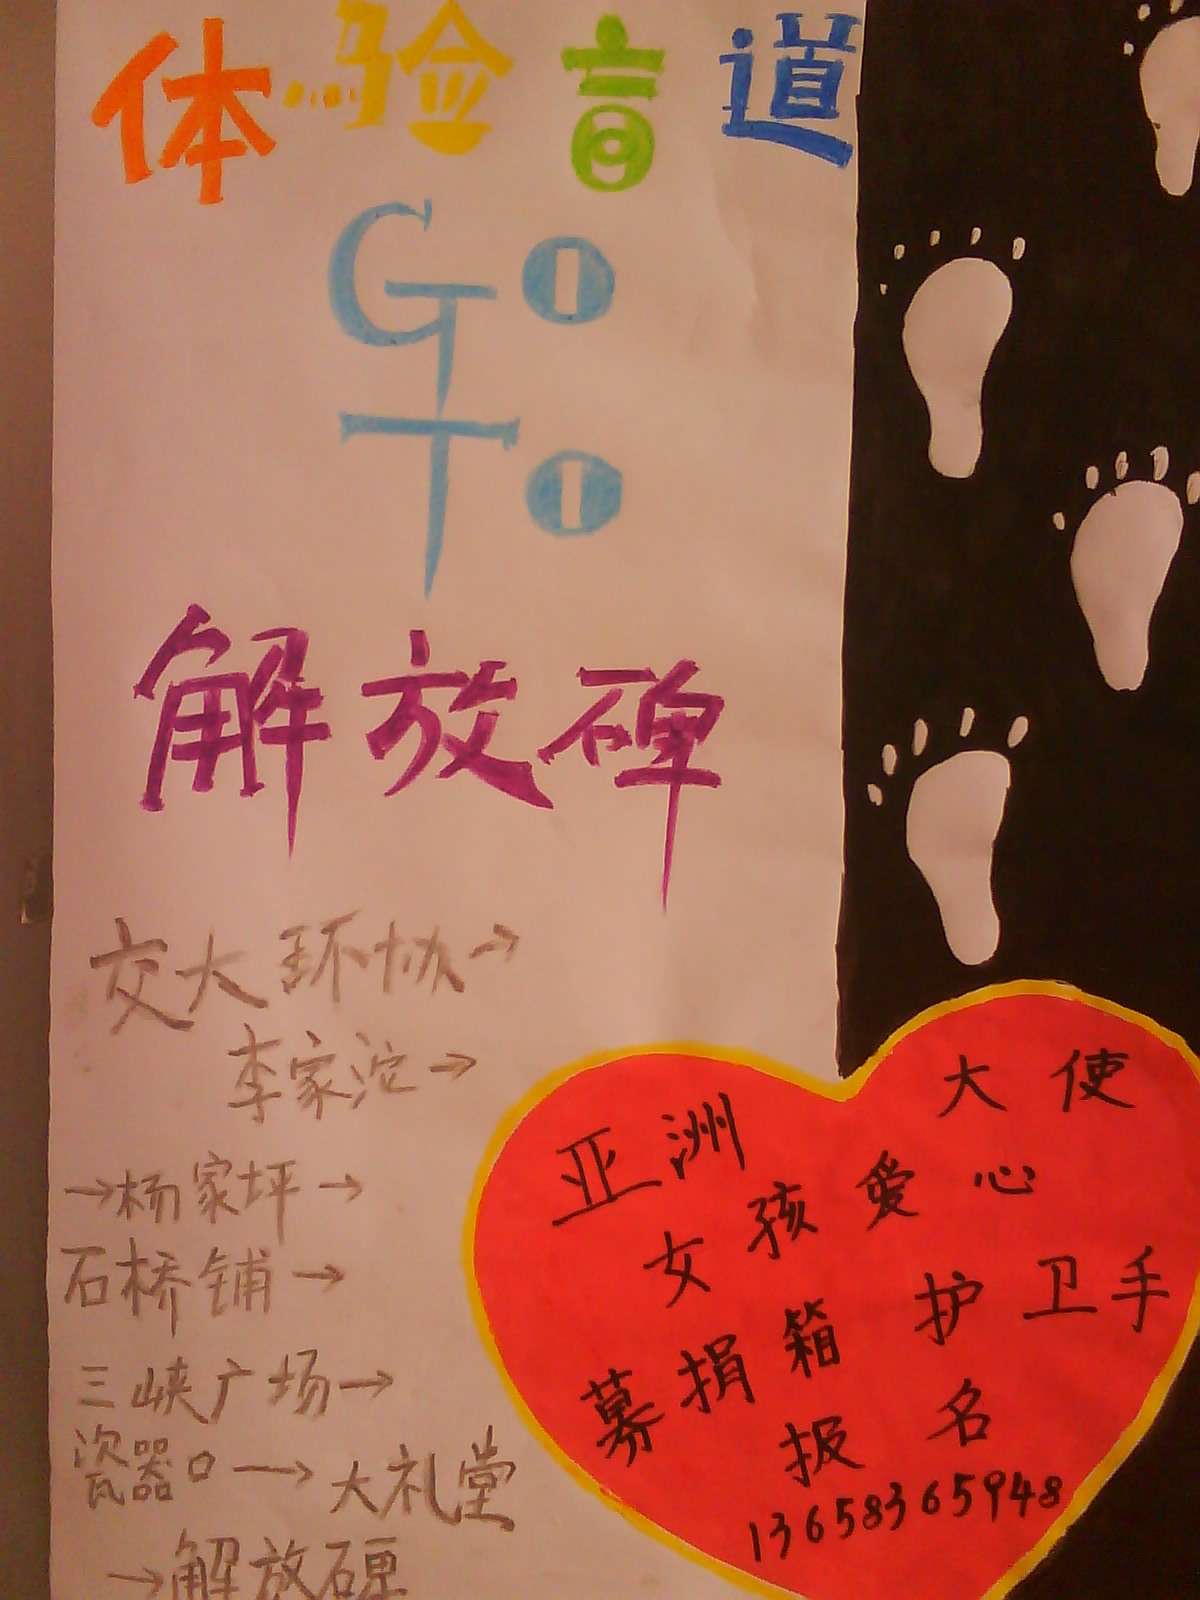 体验盲道
GO
TO
解放碑
交大环协→
李家沱→
→杨家坪→
石桥铺→
三峡广场→
瓷器口→大礼堂
→解放碑
亚洲大使
女孩爱心
募捐箱护卫手
报名
13658365948